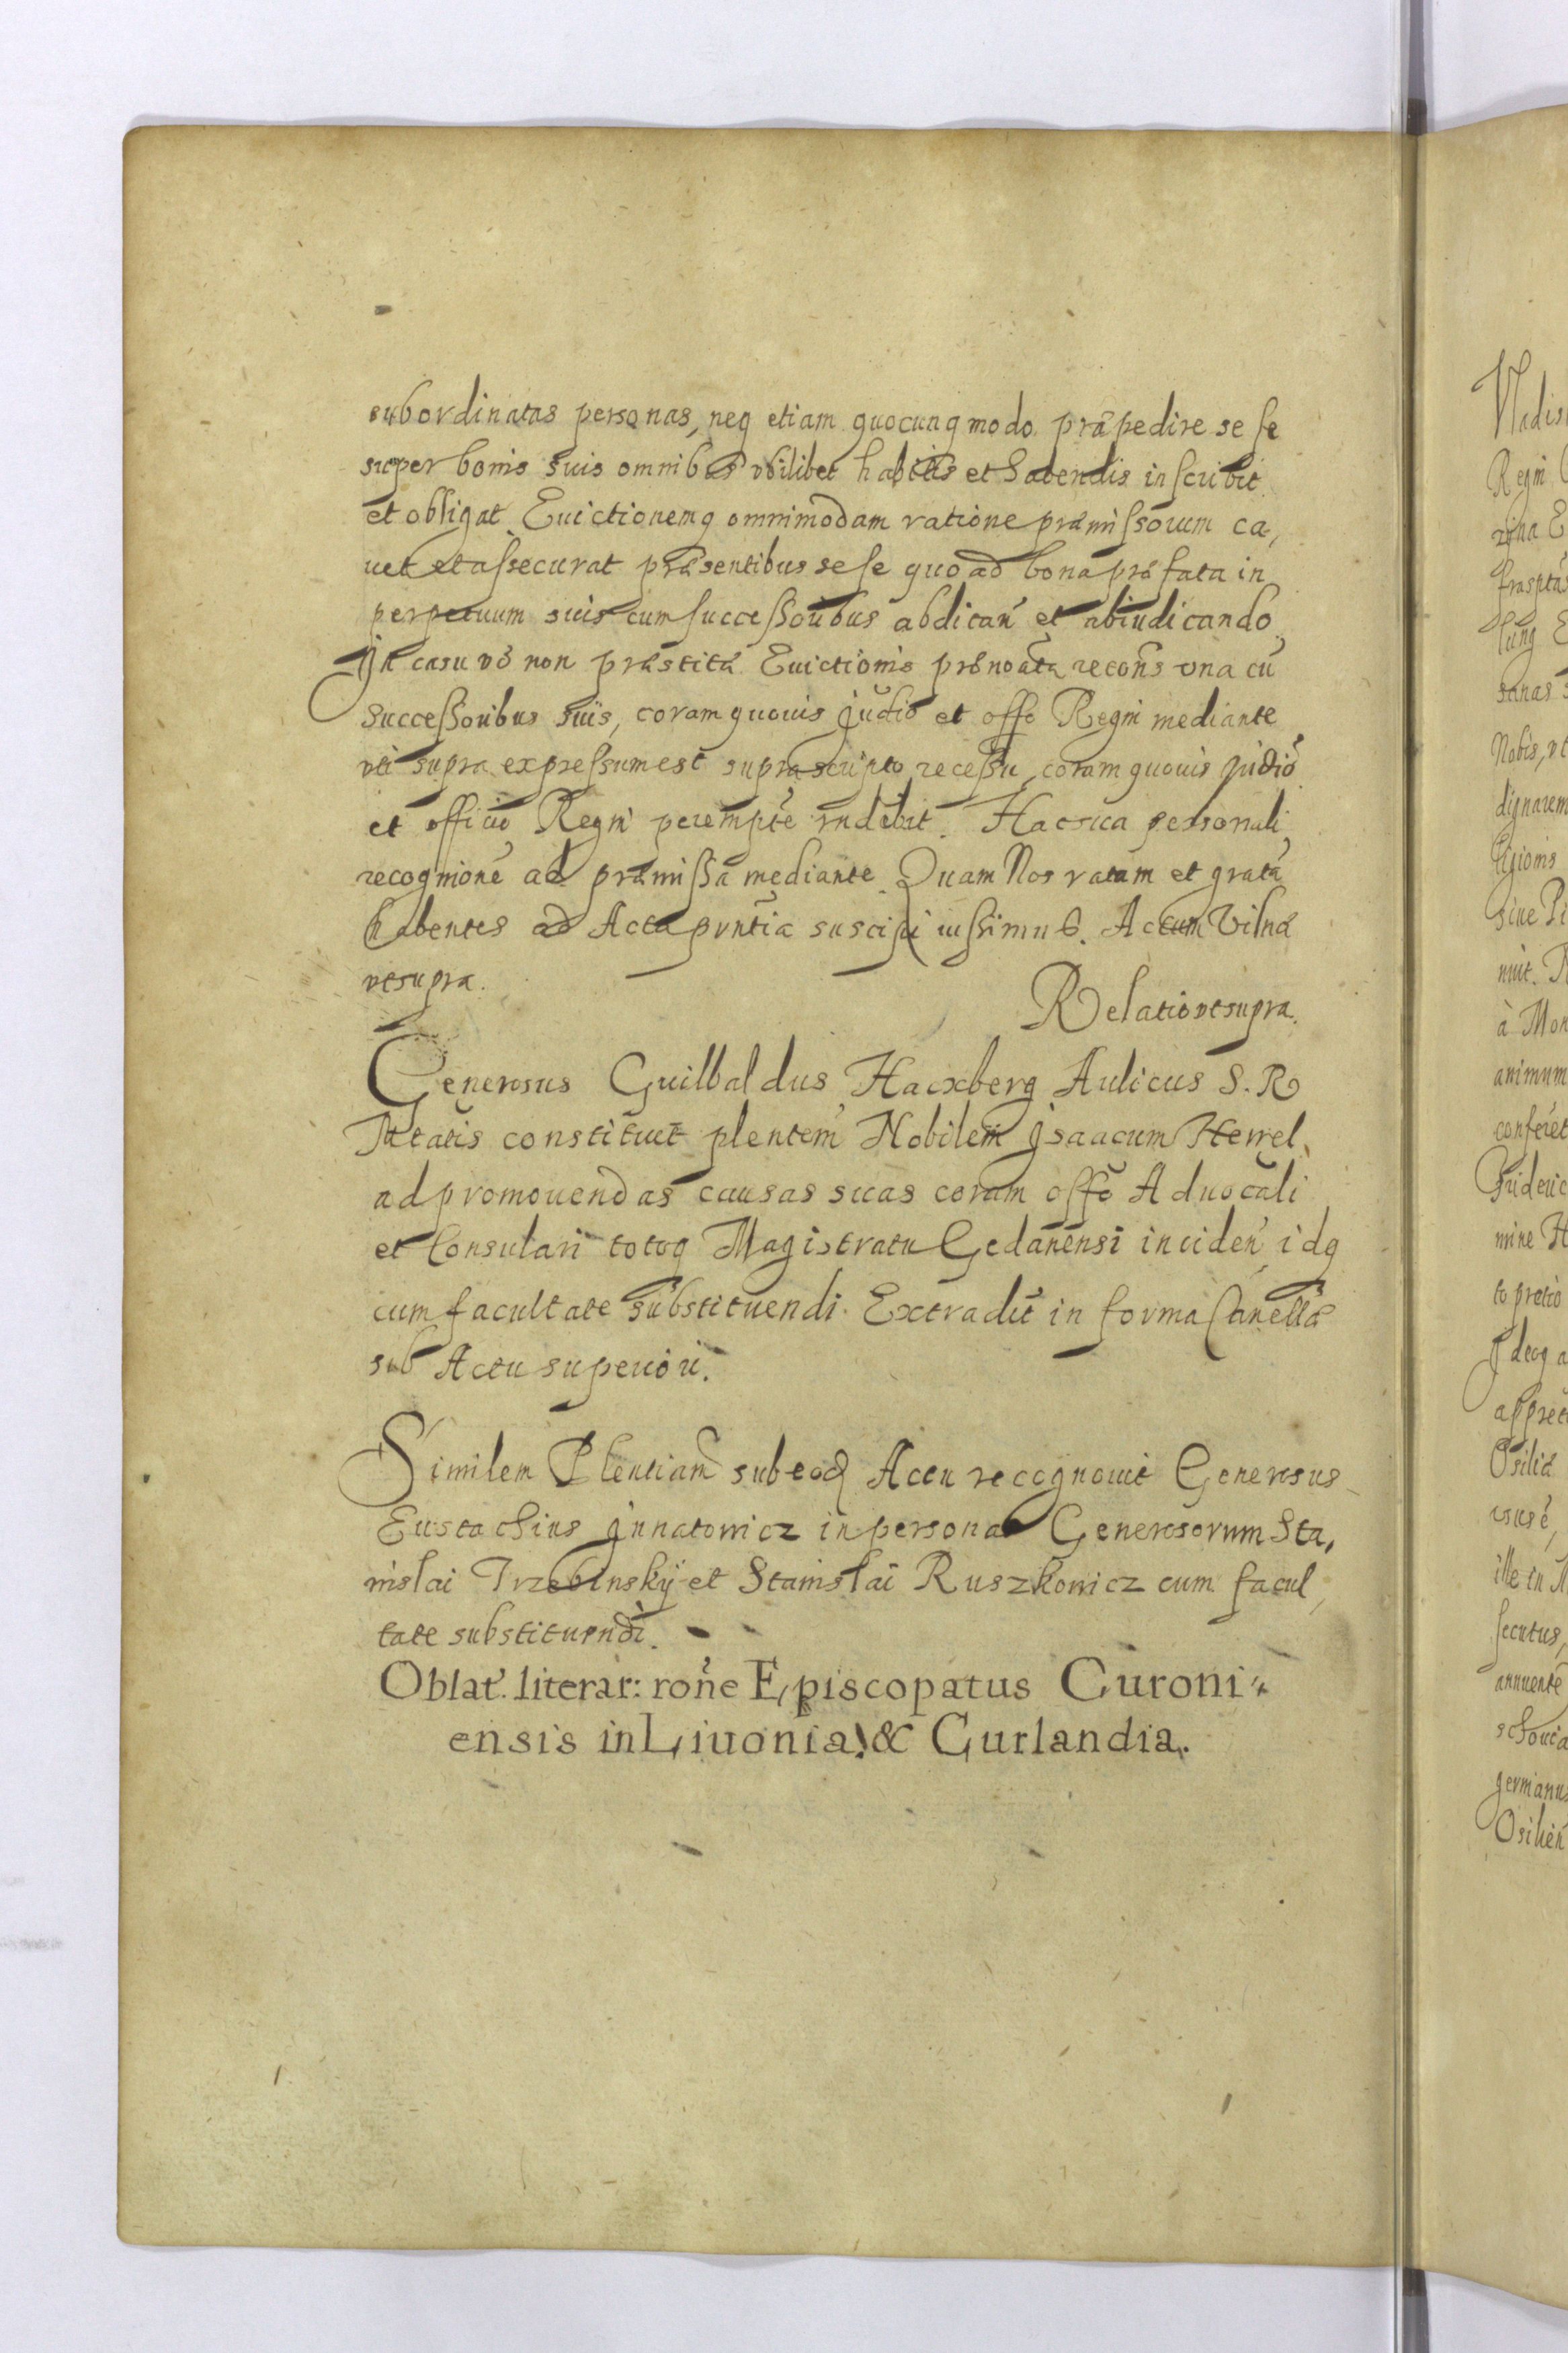 subordinatas personas, neq etiam quocunq modo præpedire se se
super bonis suis omnibus vbilibet habitis et habendis inscribit
et obligat Euictionemq omnimodam ratione præmissorum ca,
uet et assecurat præsentibus sese quo ad bona præfata in
perpetuum suis cum successoribus abdicań et abiudicando
Jn casu vō non præstitæ Euictionis prænoāta recon̄s vna cū
successoribus suis, coram quouis judiō et offo Regni mediante
vti supra expressum est suprascripto recessu, coram quouis judiō
et officio Regni peremptē rn̄debit. Hacsua personali
recognione ad præmissa mediante. Quam Nos ratam et gratā
habentes ad Acta pn̄tia suscipi iussimus. Actum Vilnæ
vtsupra.
Relatio vtsupra.
Generosus Guilbaldus Hacxberg Aulicus S. R
Mtatis constituit plentem Nobilem Jsaacum
ad promouendas causas suas coram offō Aduocāli
et Consulari totoq Magistratu Gedanensi incideń idq
cum facultate substituendi. Extradit in forma Canellæ
sub Actu superiori.
Similem Plentiam sub eod Actu recognouit Generosus
Eustachius Jnnatowicz in persona Generosorum Sta,
nislai Trzebinskÿ et Stanislai Ruszkowicz cum facul,
tate substituendi.
Oblat. literar: rońe Episcopatus Curoni-
ensis in Liuonia, & Curlandia.
Vladis
Regni
rina E
sanas
Nobis, vt
dignarem
ligionis
siue Pi
nuit.
à Mon
animum
conferet
Frideric
mine H
to pretio
Jdeoq a
appret
Osiliæ
ille in M
secutus,
annuente
germanus
Osilień